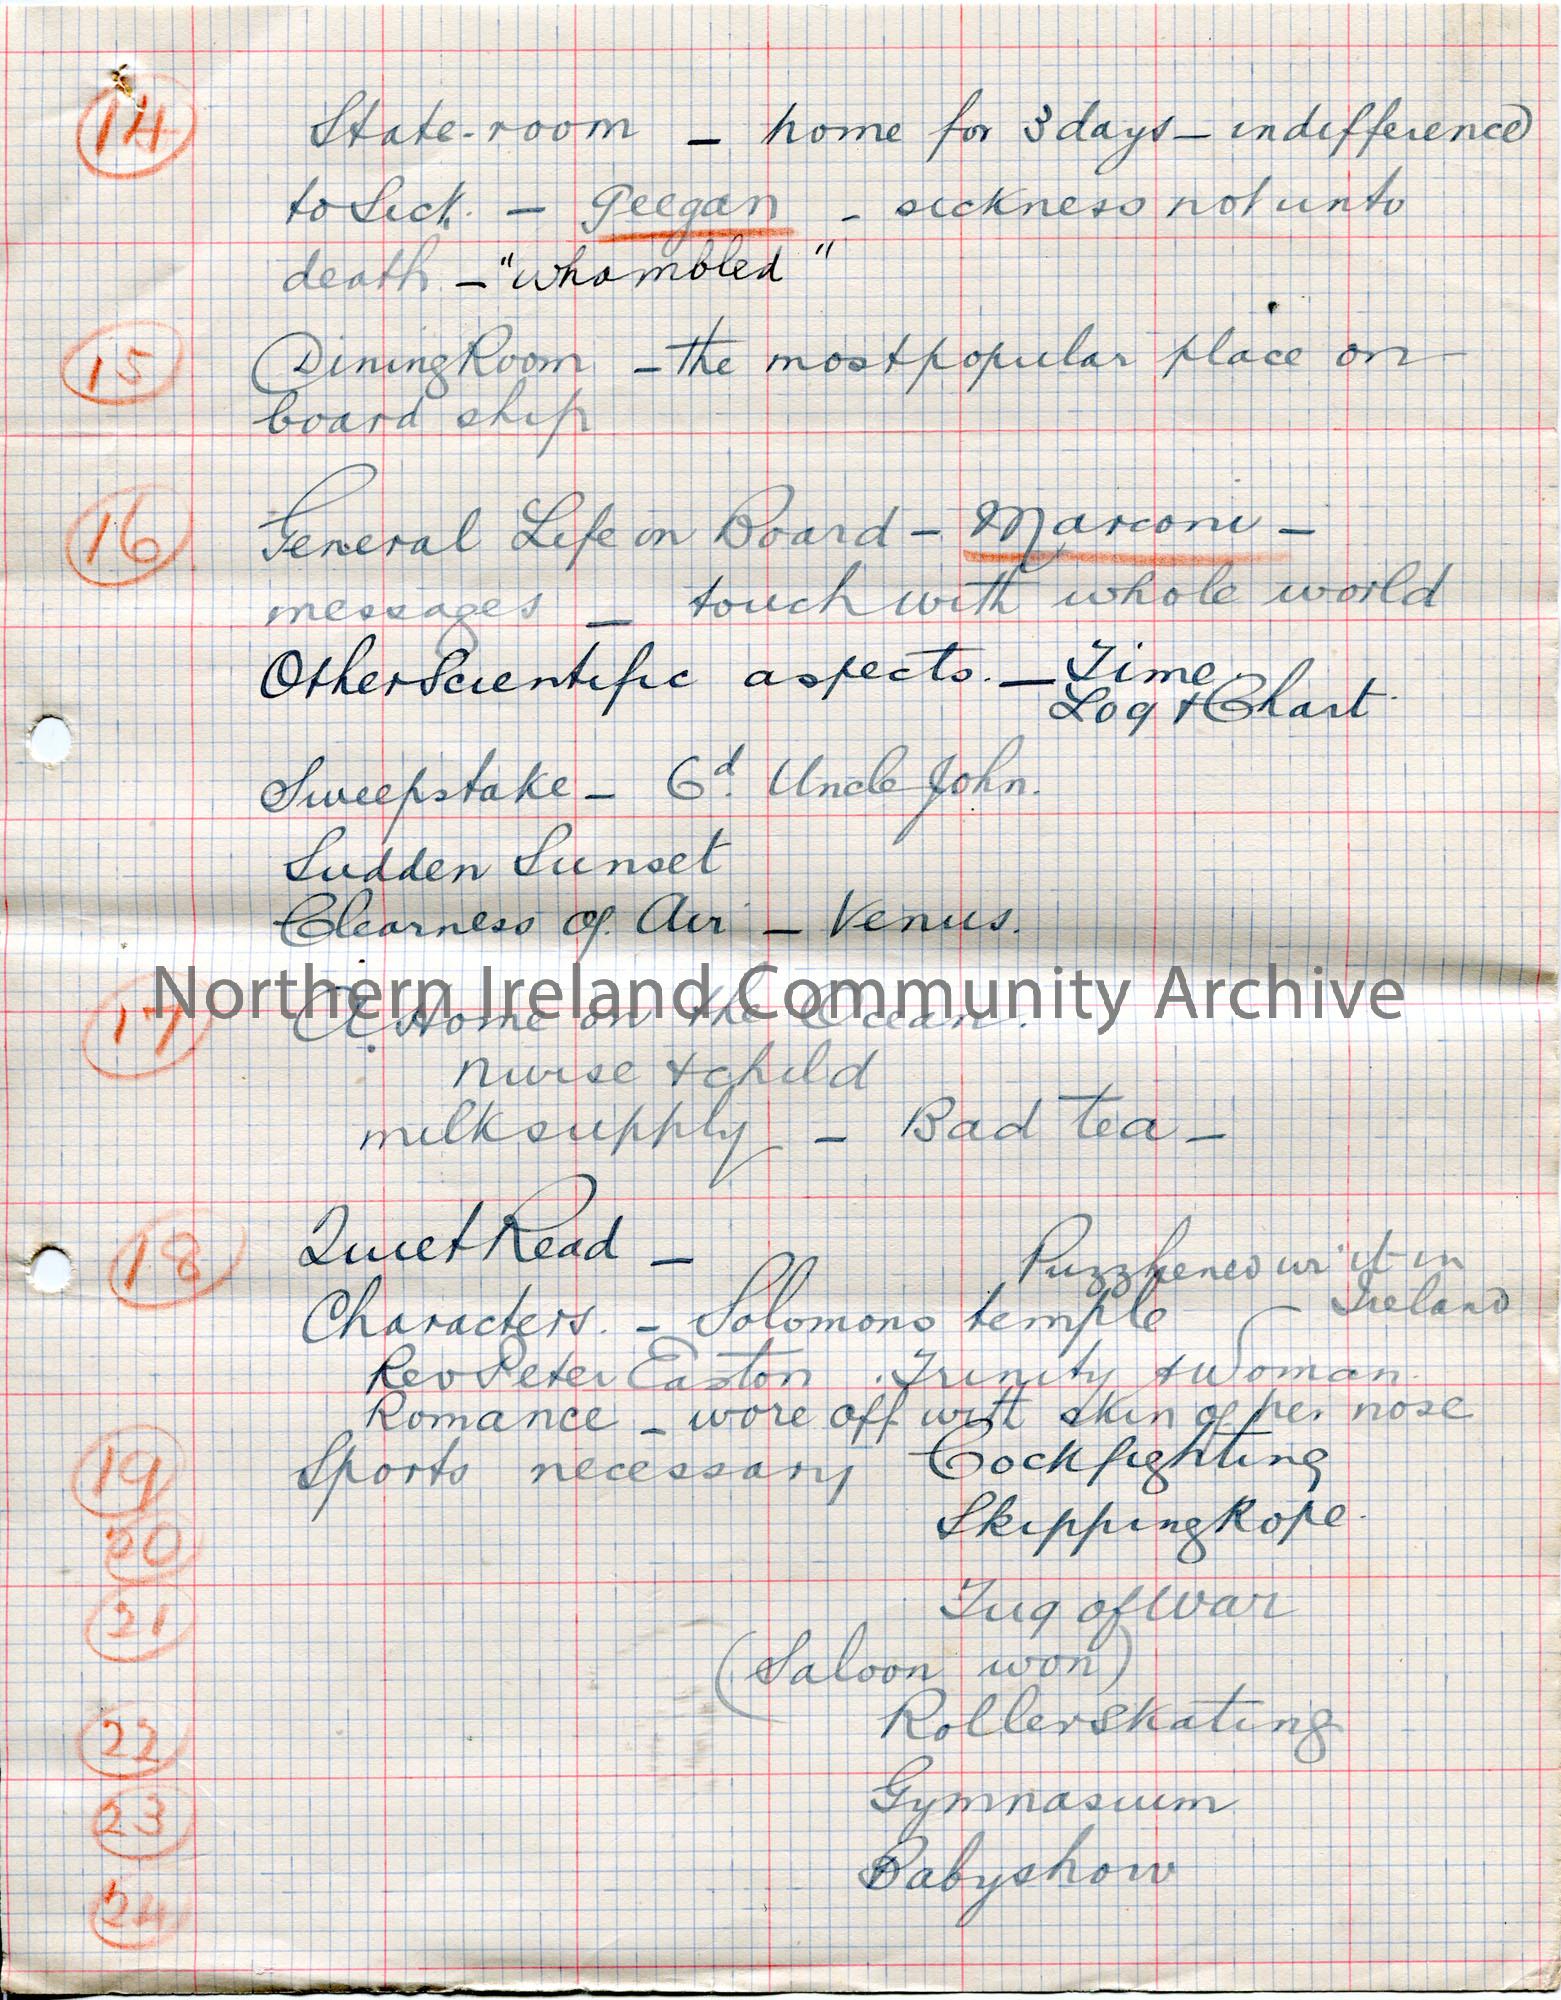 14 State-room – home for 3 days – indifference
to Sick. – Geegan – sickness not unto
death – "whombled"
15 Dining Room – the most popular place on
board ship
16 General Life on Board – Marconi –
messages – touch with whole world
Other Scientific aspects. – Time
Log + Chart.
Sweepstake – 6d. Uncle John.
Sudden Sunset
Clearness of Air – Venus.
Northern Ireland Community Archive
17 A Home on the Ocean.
nurse + child
milk supply – Bad tea –
18 Quiet Read –
Characters. – Solomons temple
wi' it in
Ireland
Rev Peter Easton. Trinity + Woman.
Romance – wore off with skin of her nose
19 Sports necessary Cockfighting
20 Skipping Rope.
21 Tug of War
(Saloon won)
22 Rollerskating
23 Gymnasium
24 Babyshow